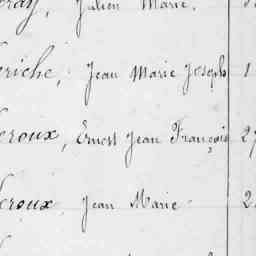 Julien Marie.
eriche, Jean Marie Joseph 1
eroux, Ernest Jean François 27
eroux, Jean Marie 2